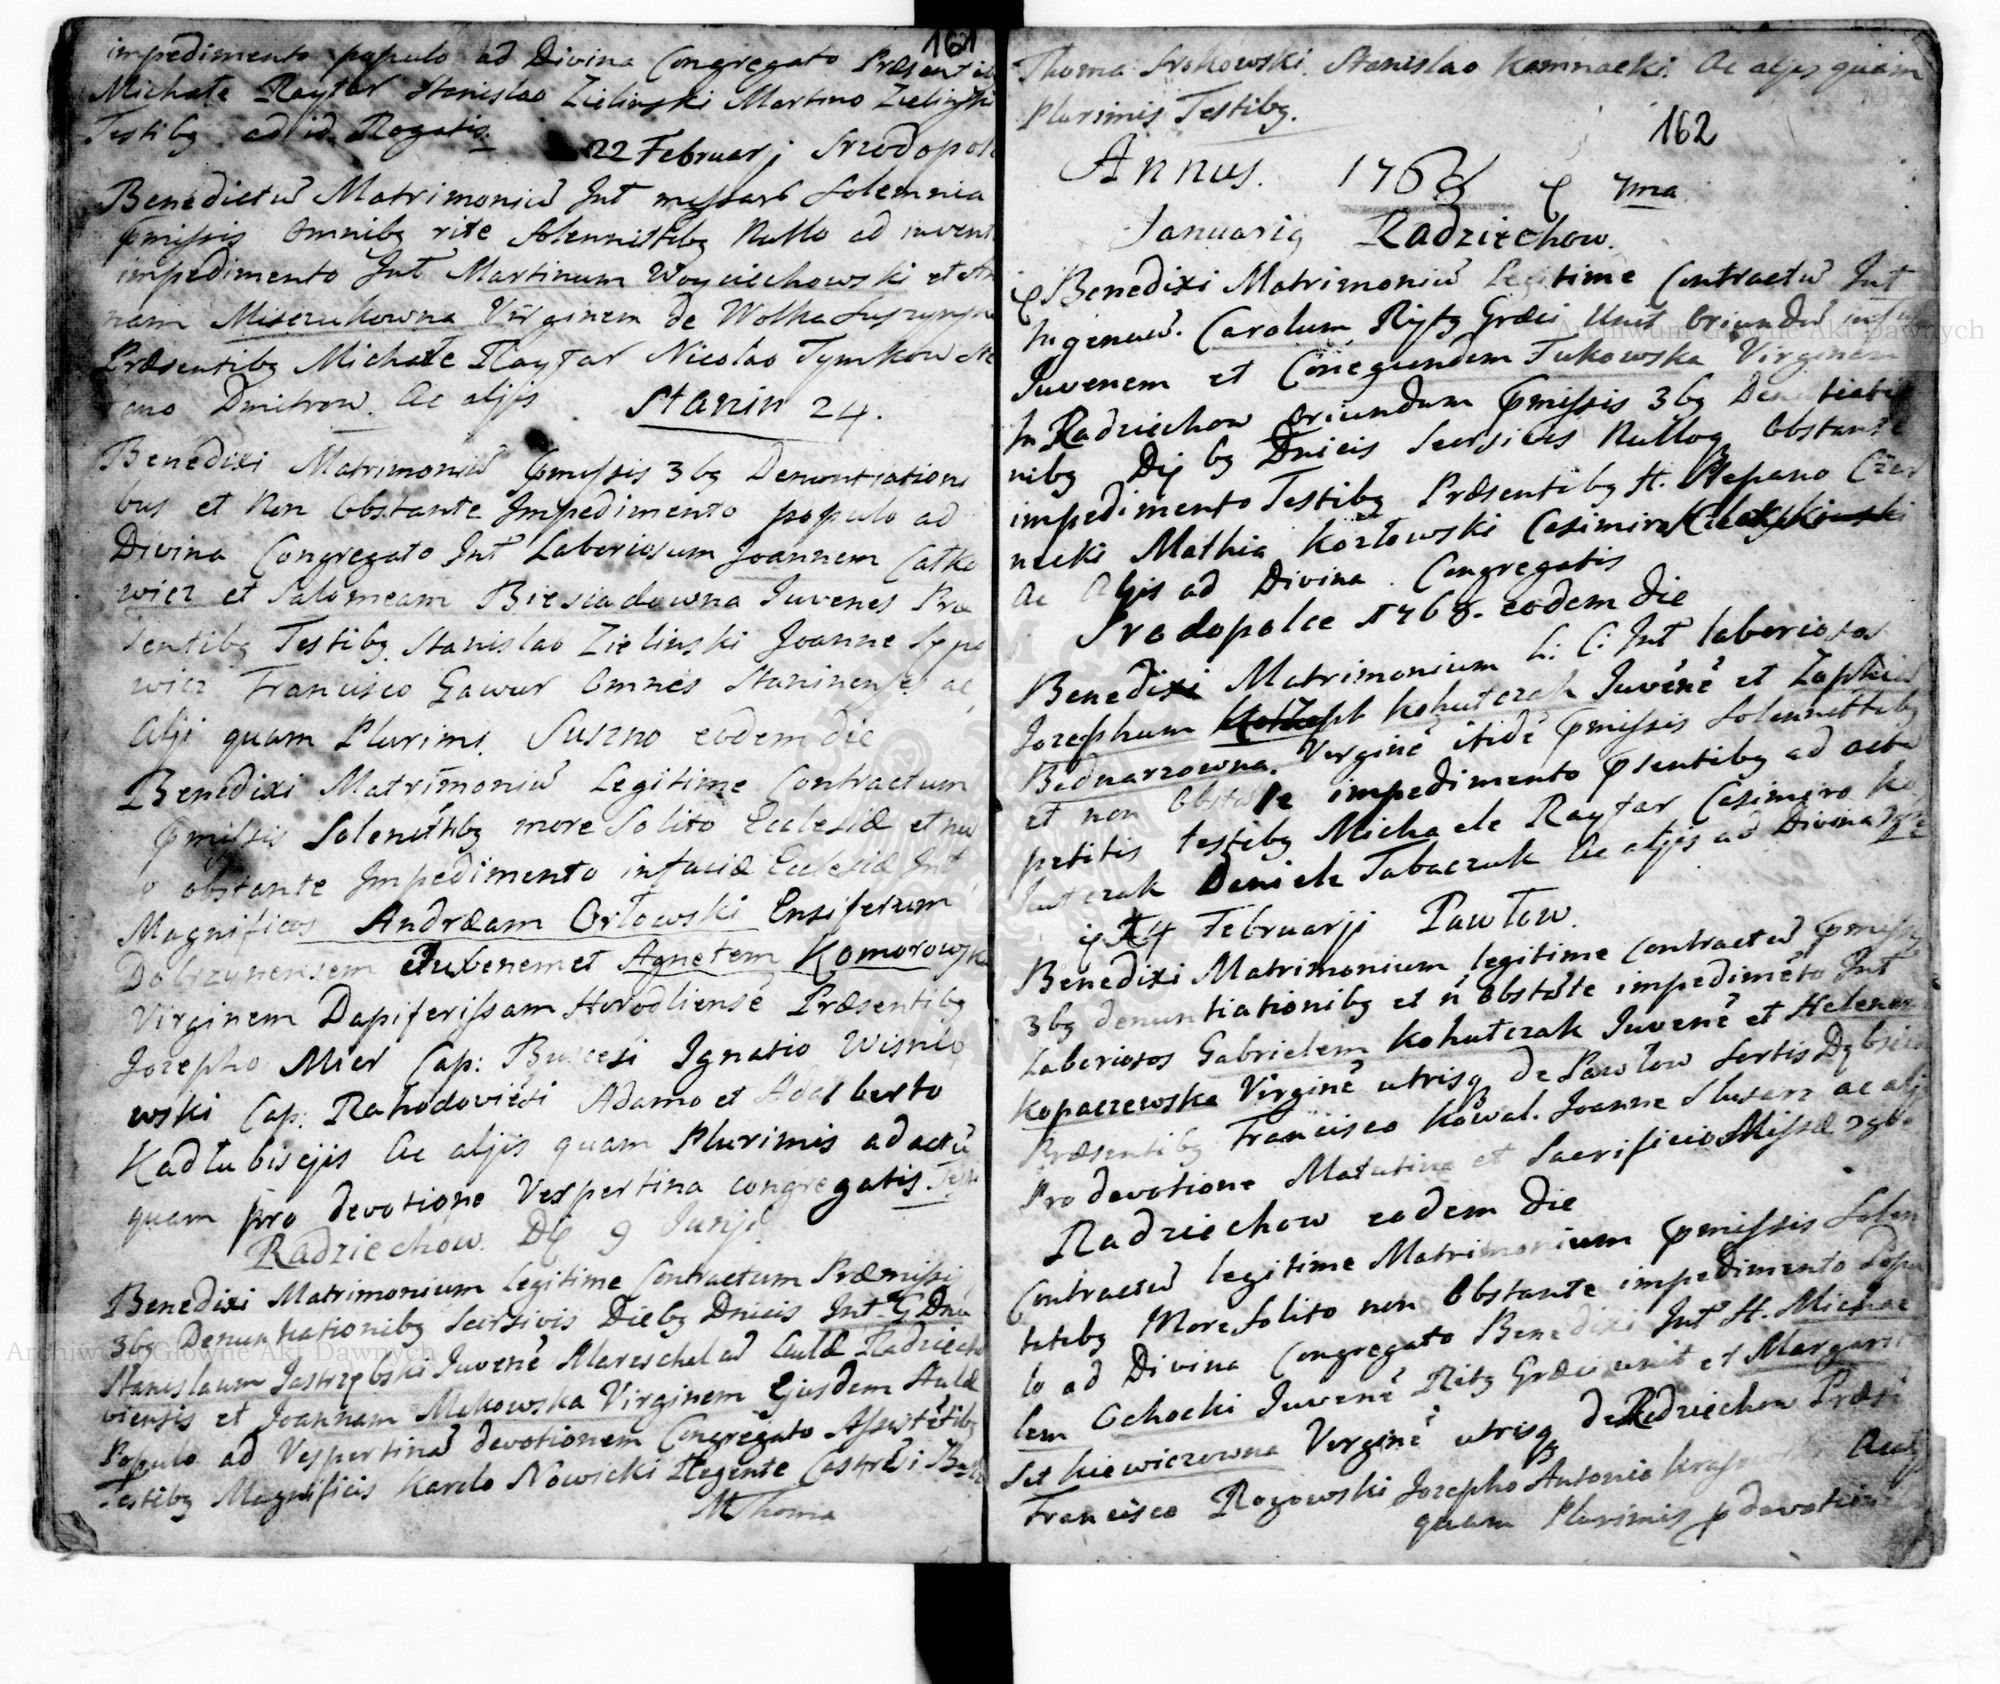 161
impedimento populo ad Divina Congregato Præsentib
Michaele Raytar Stanislao Zielinski Martino Zielinski
Testibg ad id Rogatis.
22 Februarj Srzodopol
Benedictũ Matrimoniũ Int missarũ Solemnia
præmissis Omnibg rite Solennitibg Nullo ad invent
impedimento Int Martinum Woyciechowski et An
nam Miszczukowna Virginem de Wolka Suszynska
Præsentibg Michaele Raytar Nicolao Tymkow
Dmitrow. Ac alijs
Stanin 24.
Benedixi Matrimoniũ præmissis 3bg Denuntiationi
bus et Non Obstante Impedimento populo ad
Divina Congregato Int Laboriosum Joannem Catko
wicz et Salomeam Biesiadowna Iuvenes Præ
sentibg Testibg Stanislao Zielinski Joanne
wicz Francisco Gawur Omnes Staninenses ac
alji quam Plurimi. Suszno eodem die
Benedixi Matrimoniũ Legitime Contractum
præmissis Solenitibg more Solito Ecclesiæ et nul
o obstante Impedimento in faciæ Ecclesiæ Int
Magnificos Andræam Orłowski Ensiferum
Dobrzynensem Iubenem et Agnetem Komorowska
Virginem Dapiferissam Horodliense Præsentibg
Jozepho Mier Cap: Buscesi Ignatio Wisnio
wski Cap: Rahodoviesi Adamo et Adalberto
Kadłubiscijs Ac alijs quam Plurimis ad actũ
quam pro devotione Vespertina congregatis
Radziechow. D 9 Junji
Benedixi Matrimonium Legitime Contractum Præmissis
3bg Denuntiationibg Scorsivis Diebg Dnicis Int G Dnũ
Stanislaum Jastrzębski Iuvenẽ Mareschalũ Aulæ Radziecho
viensis et Joannam Makowska Virginem Ejusdem Aulæ
Populo ad Vespertinã devotionem Congregato Assistẽtibg
Testibg Magnificis Karolo Nowicki Regente Castrẽsi
M Thoma
Thoma Srokowski Stanislao Komnacki Ac aljis quam
Plurimis Testibg.
162
Annus. 1768 7ma
Januarig Radziechow.
Benedixi Matrimoniũ Legitime Contractũ Int
Ingenuũ. Carolum Rytg Græci Unit Oriundũ
Iuvenem et Conegundem Fukowska Virginem
In Radziechow oriundum præmissis 3bg Denuntiatio
nibg bg Dnicis Scorsivis Nulloq Obstante
impedimento Testibg Præsentibg H. Stepano Czer
niecki Mathia Kozłowski Casimiro
Ac Aljis ad Divina Congregatis
Srodopolce 1768. eodem die
Benedixi Matrimonium L: C: Int laboriosos
Jozephum Kohutczak Iuvẽnẽ et Zophia
Bednarzowna. Verginẽ itidẽ præmissis Solennittibg
et non Obstante impedimento præsentibg ad acta
petitis testibg Michaele Raytar Casimiro Ko
hutczak Daniele Tabaczuk Ac aljis ad Divina
14 Februarji Pawłow.
Benedixi Matrimonium legitime Contractũ præmissis
3bg denuntiationibg et ñ Obstãte impedimẽto Int
Laboriosos Gabrielem Kohutczak Iuvenẽ et Helenam
Kopaczewska Virginẽ utrisq de Pawłow
Præsentibg Francisco Kowal. Joanne Slusarz ac alij
Pro devotione Matutina et Sacrificio Missæ
Radziechow eodem Die
Contractũ legitime Matrimonium præmissis Solen
titibg More Solito non Obstante impedimento Popu
lo ad Divina Congregato Benedixi Int H. Michae
lem Ochocki Iuvenẽ Ritg Græci unit et Margarit
Sitkiewiczowna Verginẽ utrisq de Radziechow Præsẽ
Francisco Rozowski Jozepho Antonio Ac alj
quam Plurimis p devotion